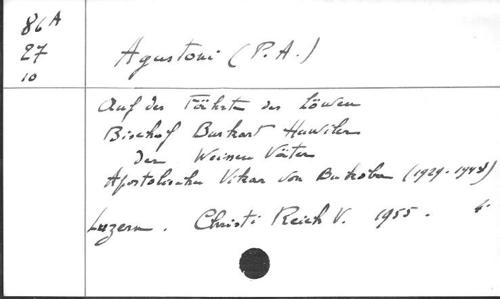 86 A
27
10
Agustoni (P. A.)
Auf der Fährte des Löwen
Bischof Burkart Huwiler
der Weissen Väter
Apostolischer Vikar von Bukoba (1929-1948)
Luzern. Christi Reich V. 1955.